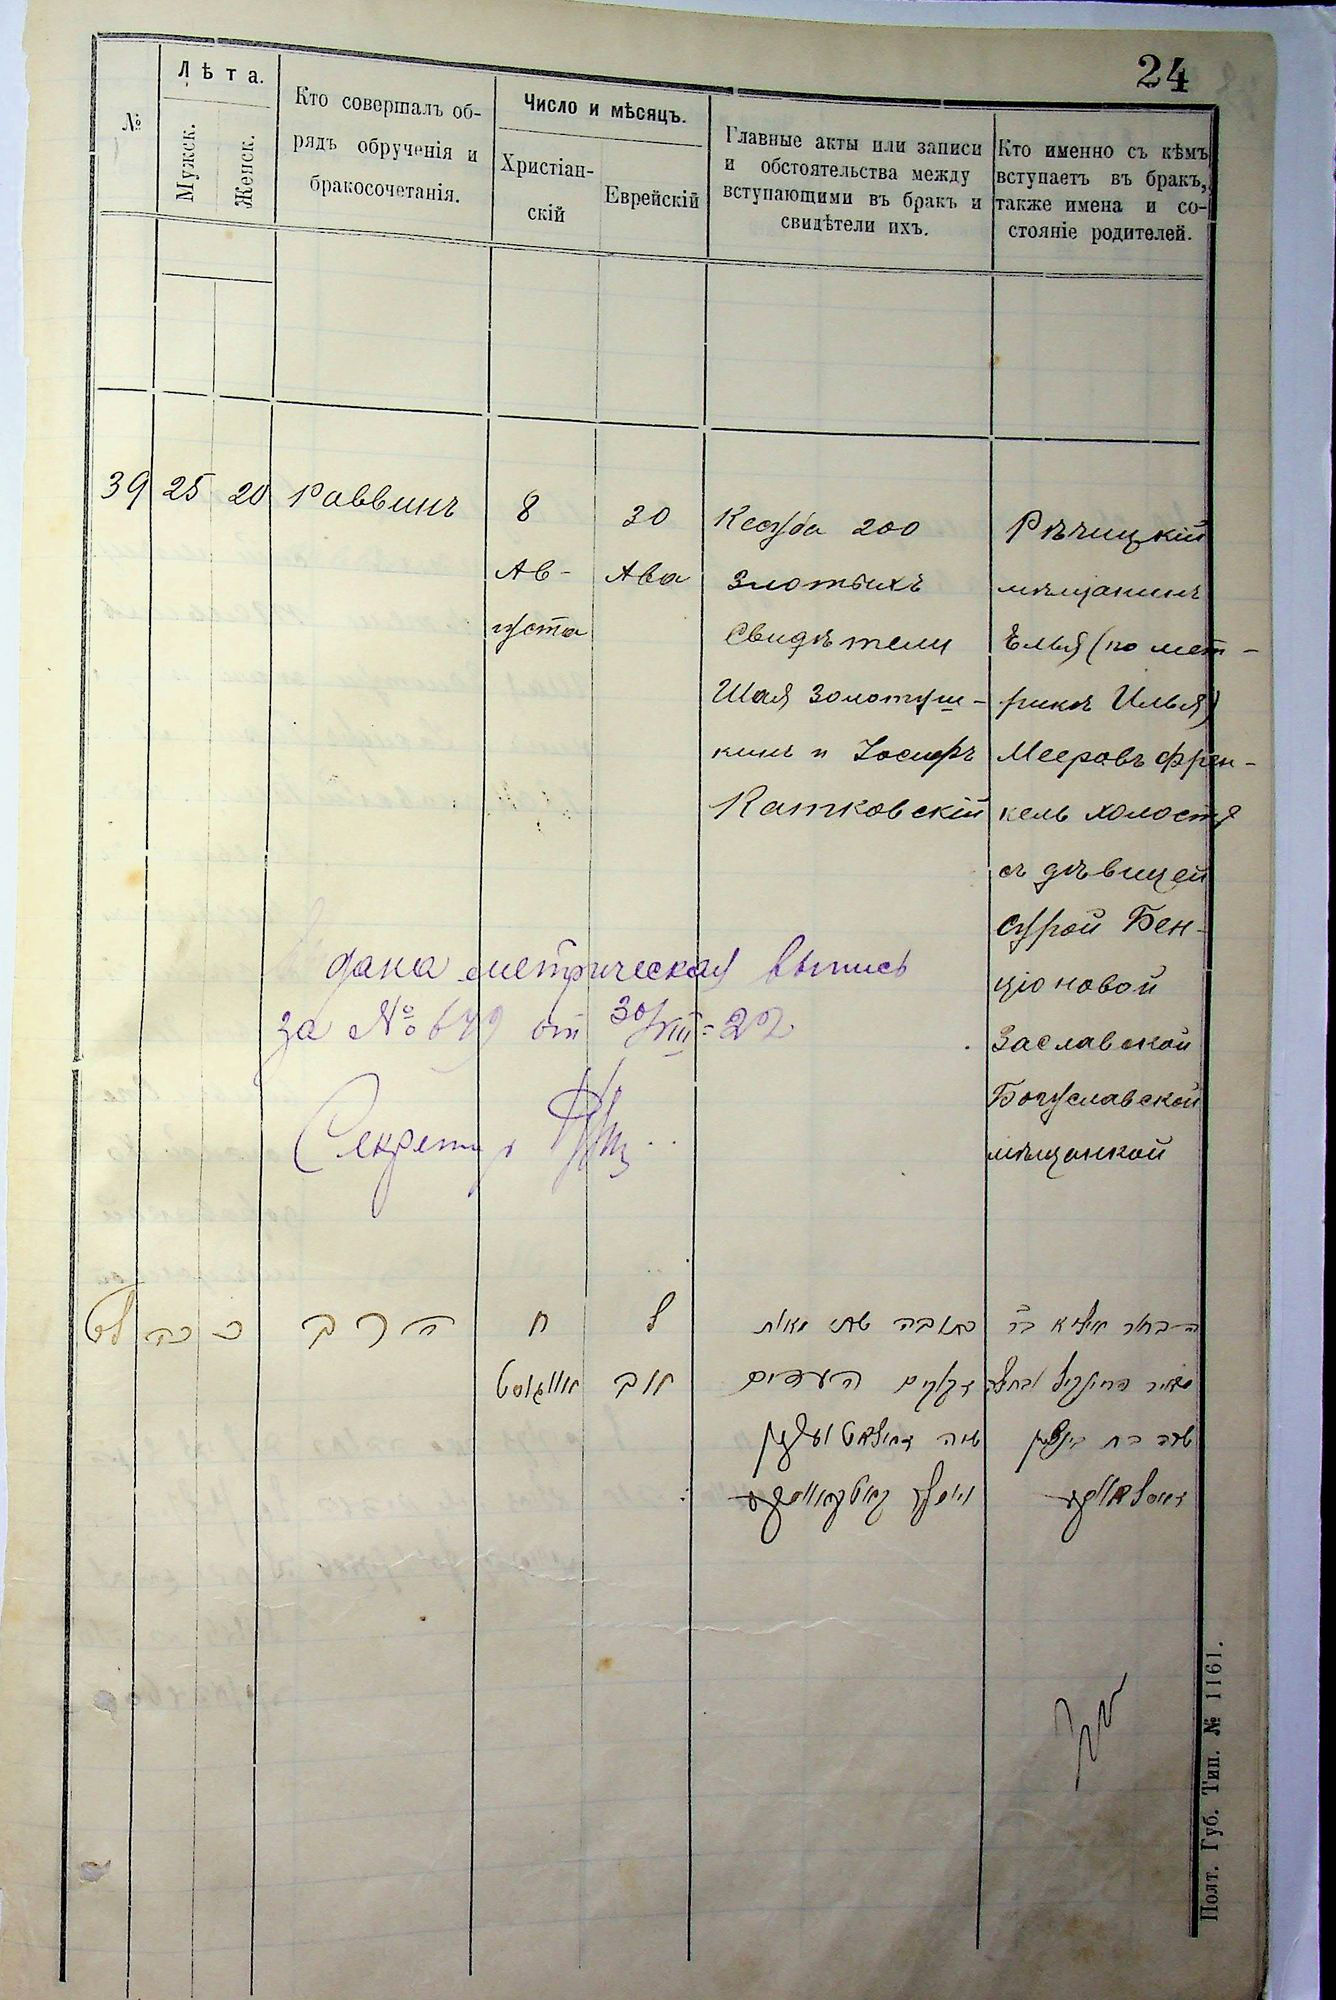 24
№
Лѣта.
Мужск.
Женск.
Кто совершалъ об-
рядъ обрученія и
бракосочетанія.
Число и мѣсяцъ.
Христіан-
скій
Еврейскій
Главные акты или записи
и обстоятельства между
вступающими въ бракъ и
свидѣтели ихъ.
Кто именно съ кѣмъ
вступаетъ въ бракъ,
также имена и со-
стояніе родителей.
39
25
20
Раввинъ
8
Ав-
густа
30
Ава
Кесуба 200
злотыхъ
Свидѣтели
Шая Золотуш-
кинъ и Іосифъ
Катковскій
Рѣчицкій
мѣщанинъ
Элья (по мет-
рикѣ Илья)
Мееровъ Френ-
кель холостъ
съ дѣвицей
Сурой Бен-
ціоновой
Заславской
Богуславской
мѣщанкой
дана метрическая выпись
за № 649 от 30/VIII-22
Секретарь
לט
כה
כ
הרב
ח
אווגוסט
ל
אב
כתובה מאתי
העדים
שרה בת
Полт. Губ. Тип. № 1161.